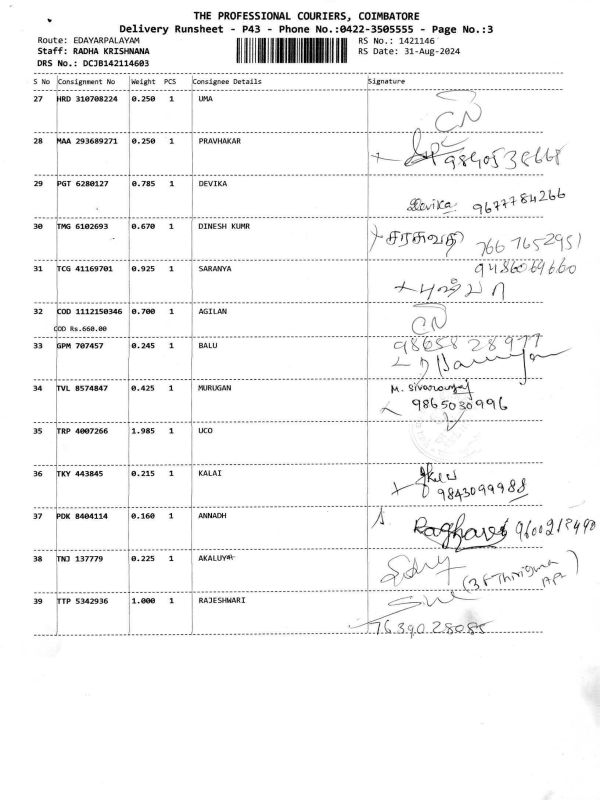 THE PROFESSIONAL COURIERS, COIMBATORE
Delivery Runsheet - P43 - Phone No.:0422-3505555 - Page No.:3
Route: EDAYARPALAYAM RS No.: 1421146
Staff: RADHA KRISHNANA RS Date: 31-Aug-2024
DRS No.: DCJB142114603
S No Consignment No Weight PCS Consignee Details Signature
27 HRD 310708224 0.250 1 UMA CN
28 MAA 293689271 0.250 1 PRAVHAKAR
29 PGT 6280127 0.785 1 DEVIKA Devika 9677784266
30 TMG 6102693 0.670 1 DINESH KUMR சரசுவதி 7667652951
31 TCG 41169701 0.925 1 SARANYA 9486069660
புஷ்பா
32 COD 1112150346 0.700 1 AGILAN CN
COD Rs.660.00
33 GPM 707457 0.245 1 BALU 9865828977
34 TVL 8574847 0.425 1 MURUGAN M. Sivaramraj
9865030996
35 TRP 4007266 1.985 1 UCO
36 TKY 443845 0.215 1 KALAI
9843099988
37 PDK 8404114 0.160 1 ANNADH
38 TNJ 137779 0.225 1 AKALUYA
39 TTP 5342936 1.000 1 RAJESHWARI
7639028085